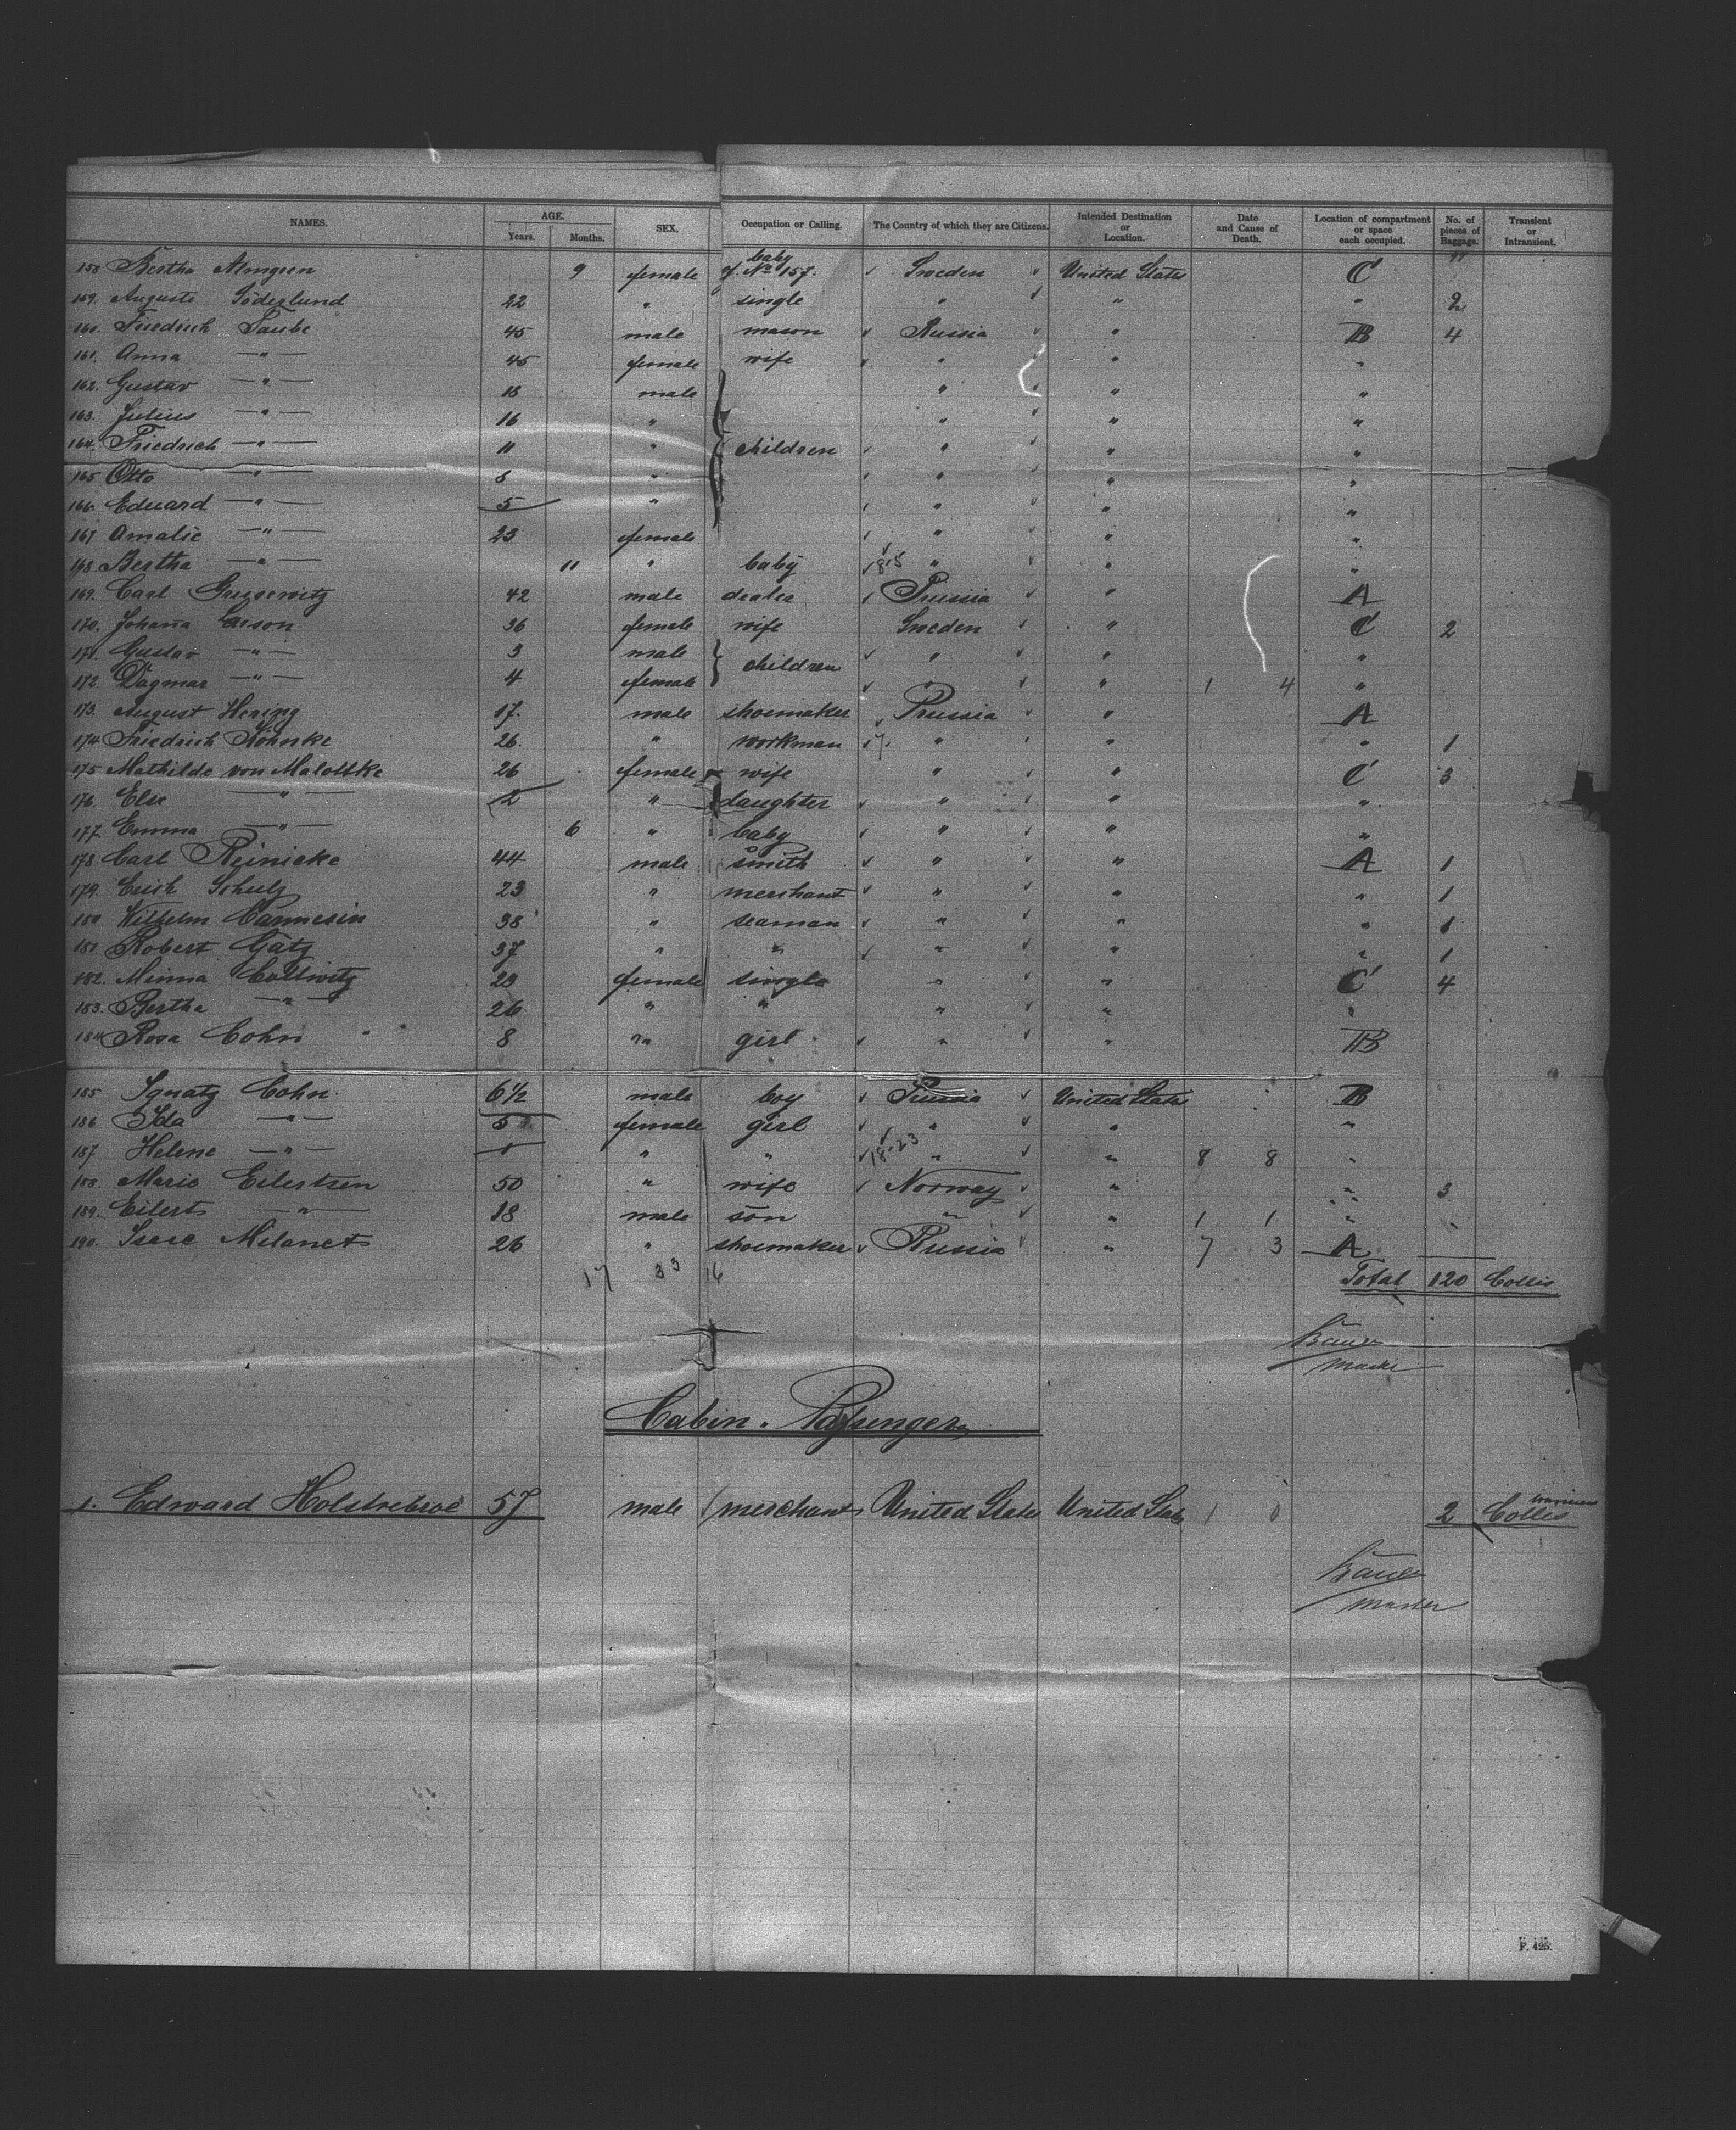 NAMES. AGE. Years. Months. SEX. Occupation or Calling. The Country of which they are Citizens. Intended Destination or Location. Date and Cause of Death. Location of compartment or space each occupied. No. of pieces of Baggage. Transient or Intransient.
158 Bertha 9 female baby of No 157. Sweden United States C
159. Auguste Söderlund 22 " single " " " 2
160. Friedrich Taube 45 male mason Russia " B 4
161. Anna —"— 45 female wife " " "
162. Gustav —"— 18 male " " "
163. Julius —"— 16 " " " "
164. Friedrich —"— 11 " children " " "
165 Otto —"— 8 " " " "
166. Eduard —"— 5 " " " "
167 Amalie —"— 23 female " " "
168. Bertha —"— 11 " baby " " "
169. Carl 42 male dealer Prussia " A
170. Johana Larson 36 female wife Sweden " C 2
171. Gustav —"— 3 male children " " "
172. Dagmar —"— 4 female " " 1 4 "
173. August Hering 17. male shoemaker Prussia " A
174 Friedrich Köhnke 26. " workman " " " 1
175 Mathilde von Malottke 26 female wife " " C 3
176. Else —"— 2 " daughter " " "
177. Emma —"— 6 " baby " " "
178. Carl Reinicke 44 male smith " " A 1
179. Erich Schulz 23 " merchant " " " 1
180. Wilhelm Cannesin 38 " seaman " " " 1
181. Robert Gätz 37 " " " " " 1
182. Minna Collwitz 23 female single " " C 4
183. Bertha —"— 26 " " " " "
184 Rosa Cohn 8 " girl " " B
185 Ignatz Cohn 6½ male boy Prussia United States B
186 Ida —"— 5 female girl " " "
187 Helene —"— 1 " " " " 8 8 "
188. Marie Eilertsen 50 " wife Norway " " 3
189. Eilert —"— 18 male son " " 1 1 "
190. Isaac Milanet 26 " shoemaker Russia " 7 3 A
17 33 16
Total 120 Collis
Cabin. Passengers
1. Edward 57 male merchant United States United States 2 Collis
Master
F. 425.